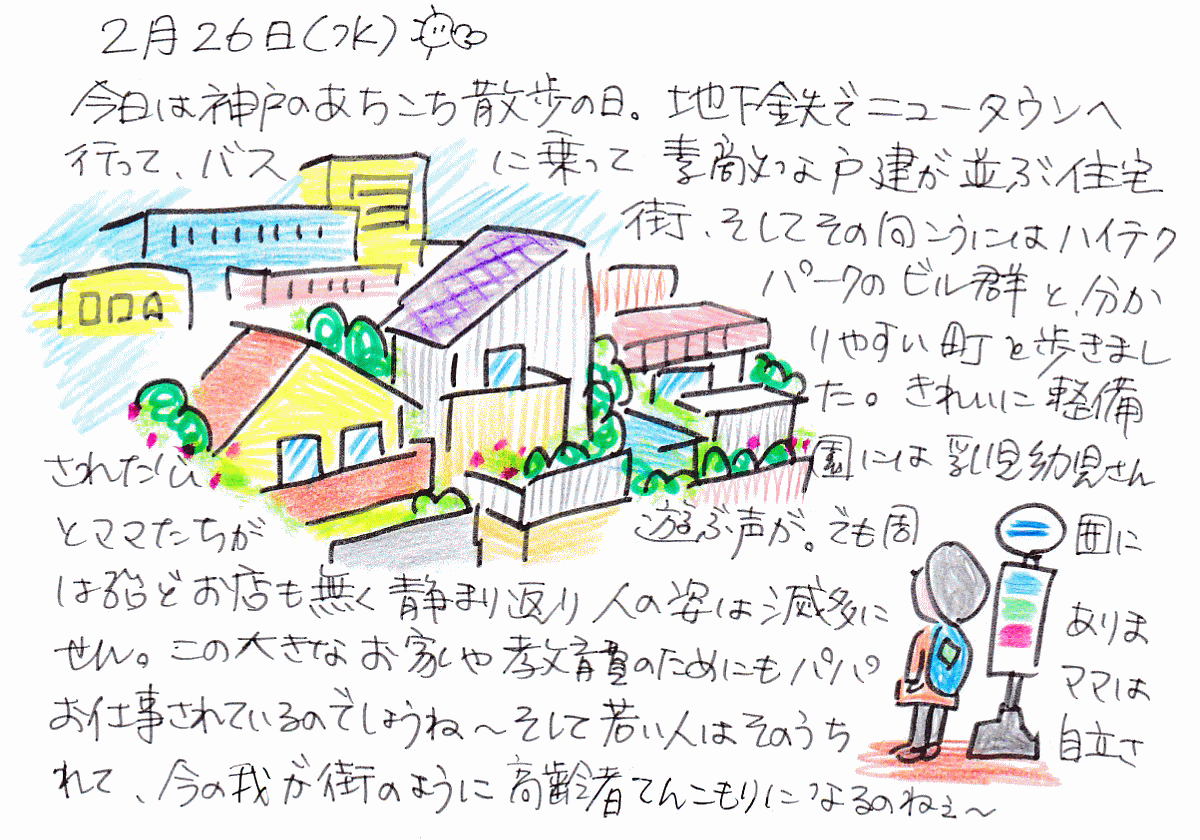 2月26日(水)
今日は神戸のあちこち散歩の日。地下鉄でニュータウンへ
行って、バスに乗って素敵な戸建が並ぶ住宅
街、そしてその向こうにはハイテク
パークのビル群と、分か
りやすい町を歩きまし
た。きれいに整備
された公園には乳児幼児さん
とママたちが遊ぶ声が。でも周囲に
は殆どお店も無く静まり返り人の姿は滅多にありま
せん。この大きなお家や教育費のためにもパパママは
お仕事されているのでしょうね～そして若い人はそのうち自立さ
れて、今の我が街のように高齢者てんこもりになるのねぇ～